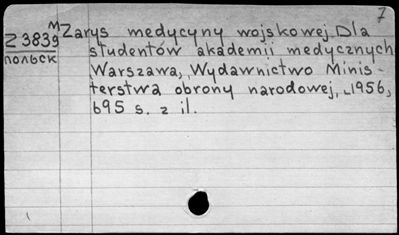 7
M Zarys medycyny wojskowej. Dla
Z 3839 studentów akademii medycznych
польск Warszawa, Wydawnictwo Minis-
terstwa obrony narodowej, 1956,
695 s. z il.